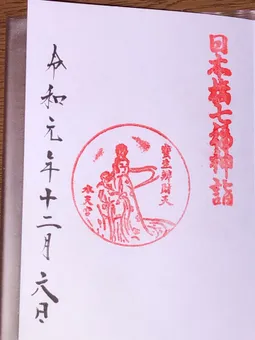 日本橋七福神詣
寳生辨財天
水天宮
令和元年十二月六日